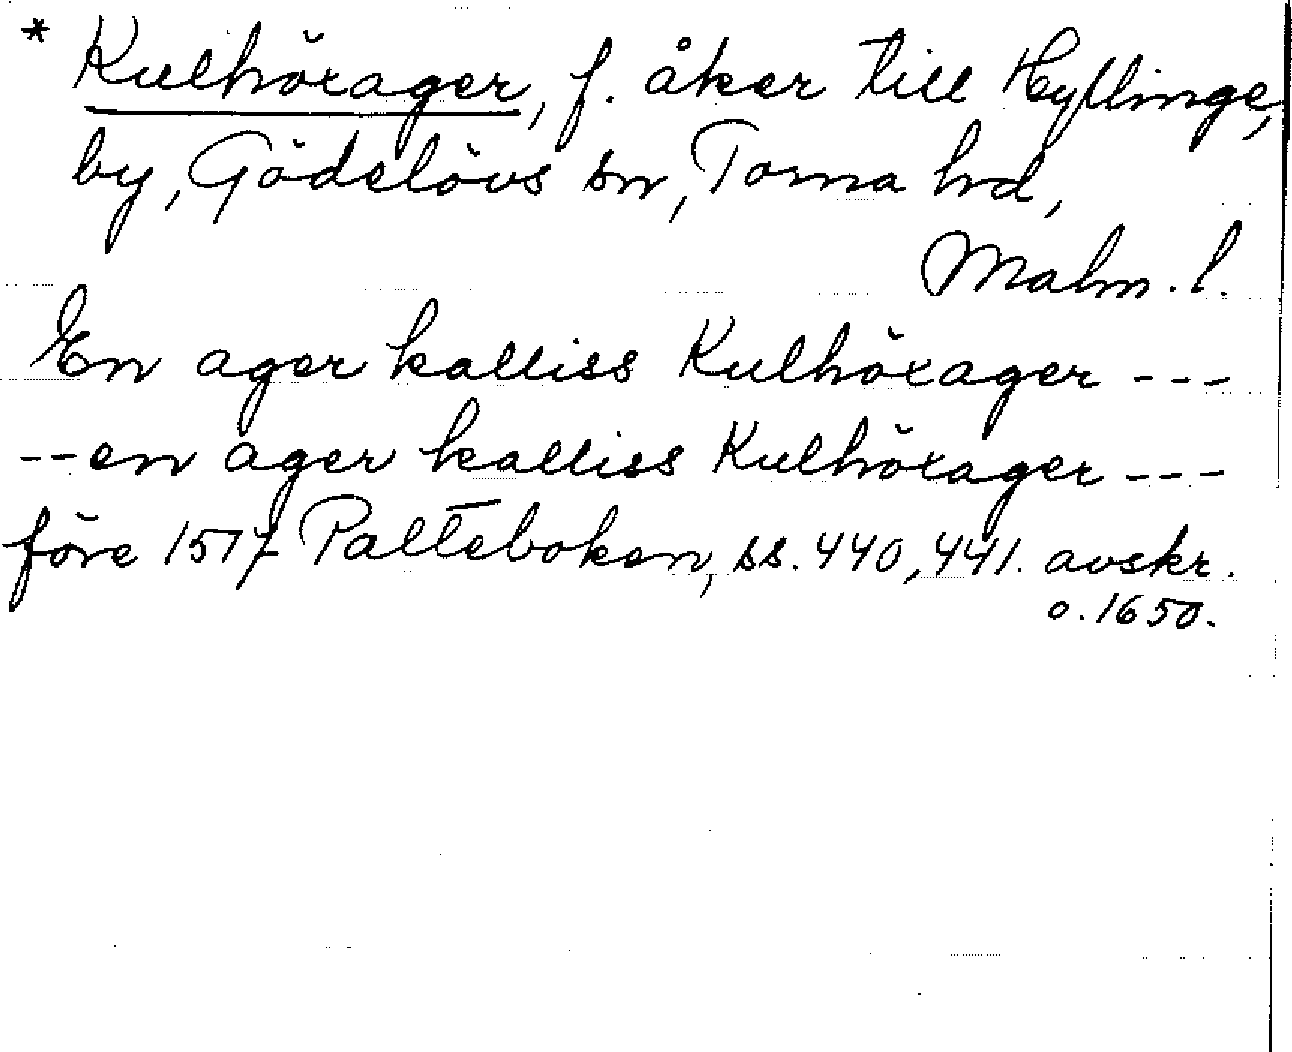 * Kulhöxager, f. åker till Hyllinge,
by, Gödelövs sn, Torna hrd,
Malm. l.
En ager kalliss Kulhöxager ---
--en ager kalliss Kulhöxager ---
före 1517 Palteboken, ss. 440, 441. avskr.
o. 1650.